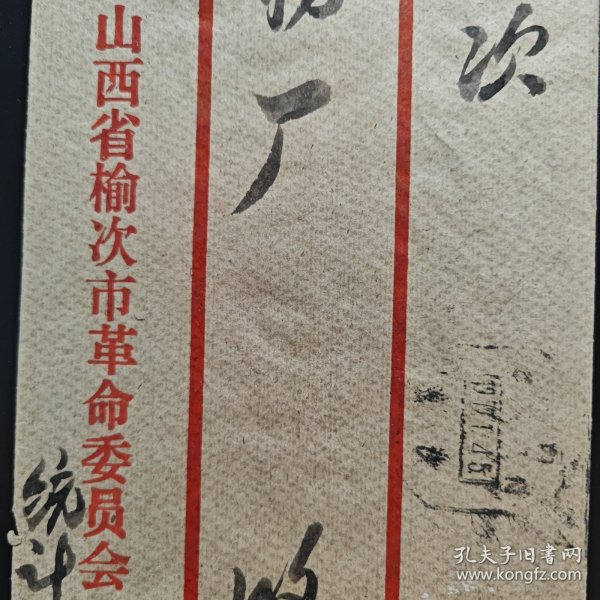 次
厂
收
山西省榆次市革命委员会
统计
孔夫子旧书网
www.kongfz.com